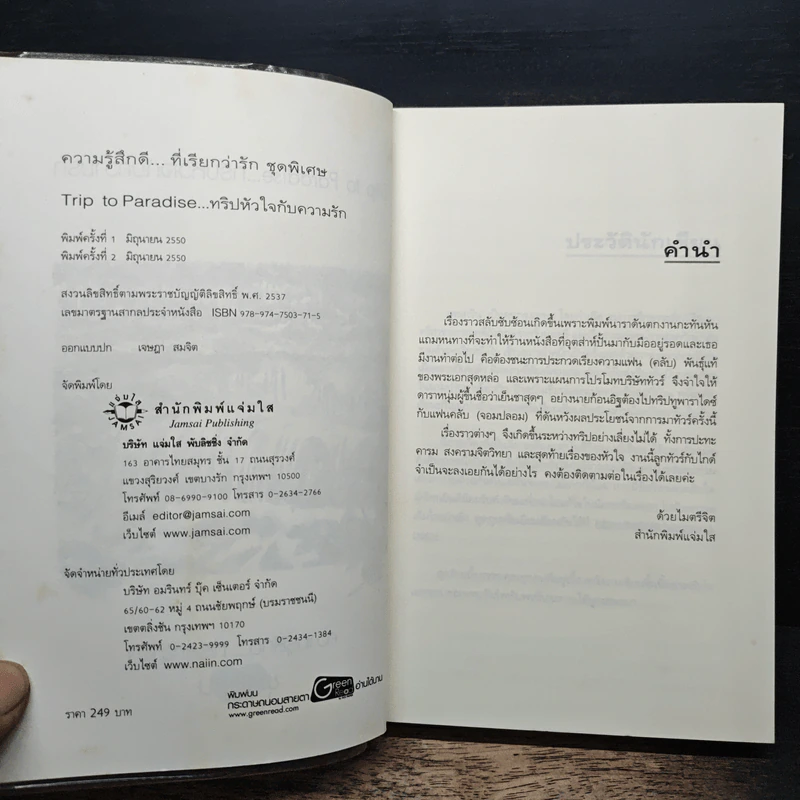 ความรู้สึกดี... ที่เรียกว่ารัก ชุดพิเศษ
Trip to Paradise...ทริปหัวใจกับความรัก
พิมพ์ครั้งที่ 1 มิถุนายน 2550
พิมพ์ครั้งที่ 2 มิถุนายน 2550
สงวนลิขสิทธิ์ตามพระราชบัญญัติลิขสิทธิ์ พ.ศ. 2537
เลขมาตรฐานสากลประจำหนังสือ ISBN 978-974-7503-71-5
ออกแบบปก เจษฎา สมจิต
จัดพิมพ์โดย
แจ่มใส
JAMSAI
สำนักพิมพ์แจ่มใส
Jamsai Publishing
บริษัท แจ่มใส พับลิชชิ่ง จำกัด
163 อาคารไทยสมุทร ชั้น 17 ถนนสุรวงศ์
แขวงสุริยวงศ์ เขตบางรัก กรุงเทพฯ 10500
โทรศัพท์ 08-6990-9100 โทรสาร 0-2634-2766
อีเมล์ editor@jamsai.com
เว็บไซต์ www.jamsai.com
จัดจำหน่ายทั่วประเทศโดย
บริษัท อมรินทร์ บุ๊ค เซ็นเตอร์ จำกัด
65/60-62 หมู่ 4 ถนนชัยพฤกษ์ (บรมราชชนนี)
เขตตลิ่งชัน กรุงเทพฯ 10170
โทรศัพท์ 0-2423-9999 โทรสาร 0-2434-1384
เว็บไซต์ www.naiin.com
พิมพ์บน
กระดาษถนอมสายตา
www.greenread.com
Green Read
อ่านได้นาน
ราคา 249 บาท
คำนำ
เรื่องราวสลับซับซ้อนเกิดขึ้นเพราะพิมพ์นาราดันตกงานกะทันหัน
แถมหนทางที่จะทำให้ร้านหนังสือที่อุตส่าห์ปั้นมากับมืออยู่รอดและเธอ
มีงานทำต่อไป คือต้องชนะการประกวดเรียงความแฟน (คลับ) พันธุ์แท้
ของพระเอกสุดหล่อ และเพราะแผนการโปรโมทบริษัททัวร์ จึงจำใจให้
ดาราหนุ่มผู้ขึ้นชื่อว่าเย็นชาสุดๆ อย่างนายก้อนอิฐต้องไปทริปทูพาราไดซ์
กับแฟนคลับ (จอมปลอม) ที่ดันหวังผลประโยชน์จากการมาทัวร์ครั้งนี้
เรื่องราวต่างๆ จึงเกิดขึ้นระหว่างทริปอย่างเลี่ยงไม่ได้ ทั้งการปะทะ
คารม สงครามจิตวิทยา และสุดท้ายเรื่องของหัวใจ งานนี้ลูกทัวร์กับไกด์
จำเป็นจะลงเอยกันได้อย่างไร คงต้องติดตามต่อในเรื่องได้เลยค่ะ
ด้วยไมตรีจิต
สำนักพิมพ์แจ่มใส